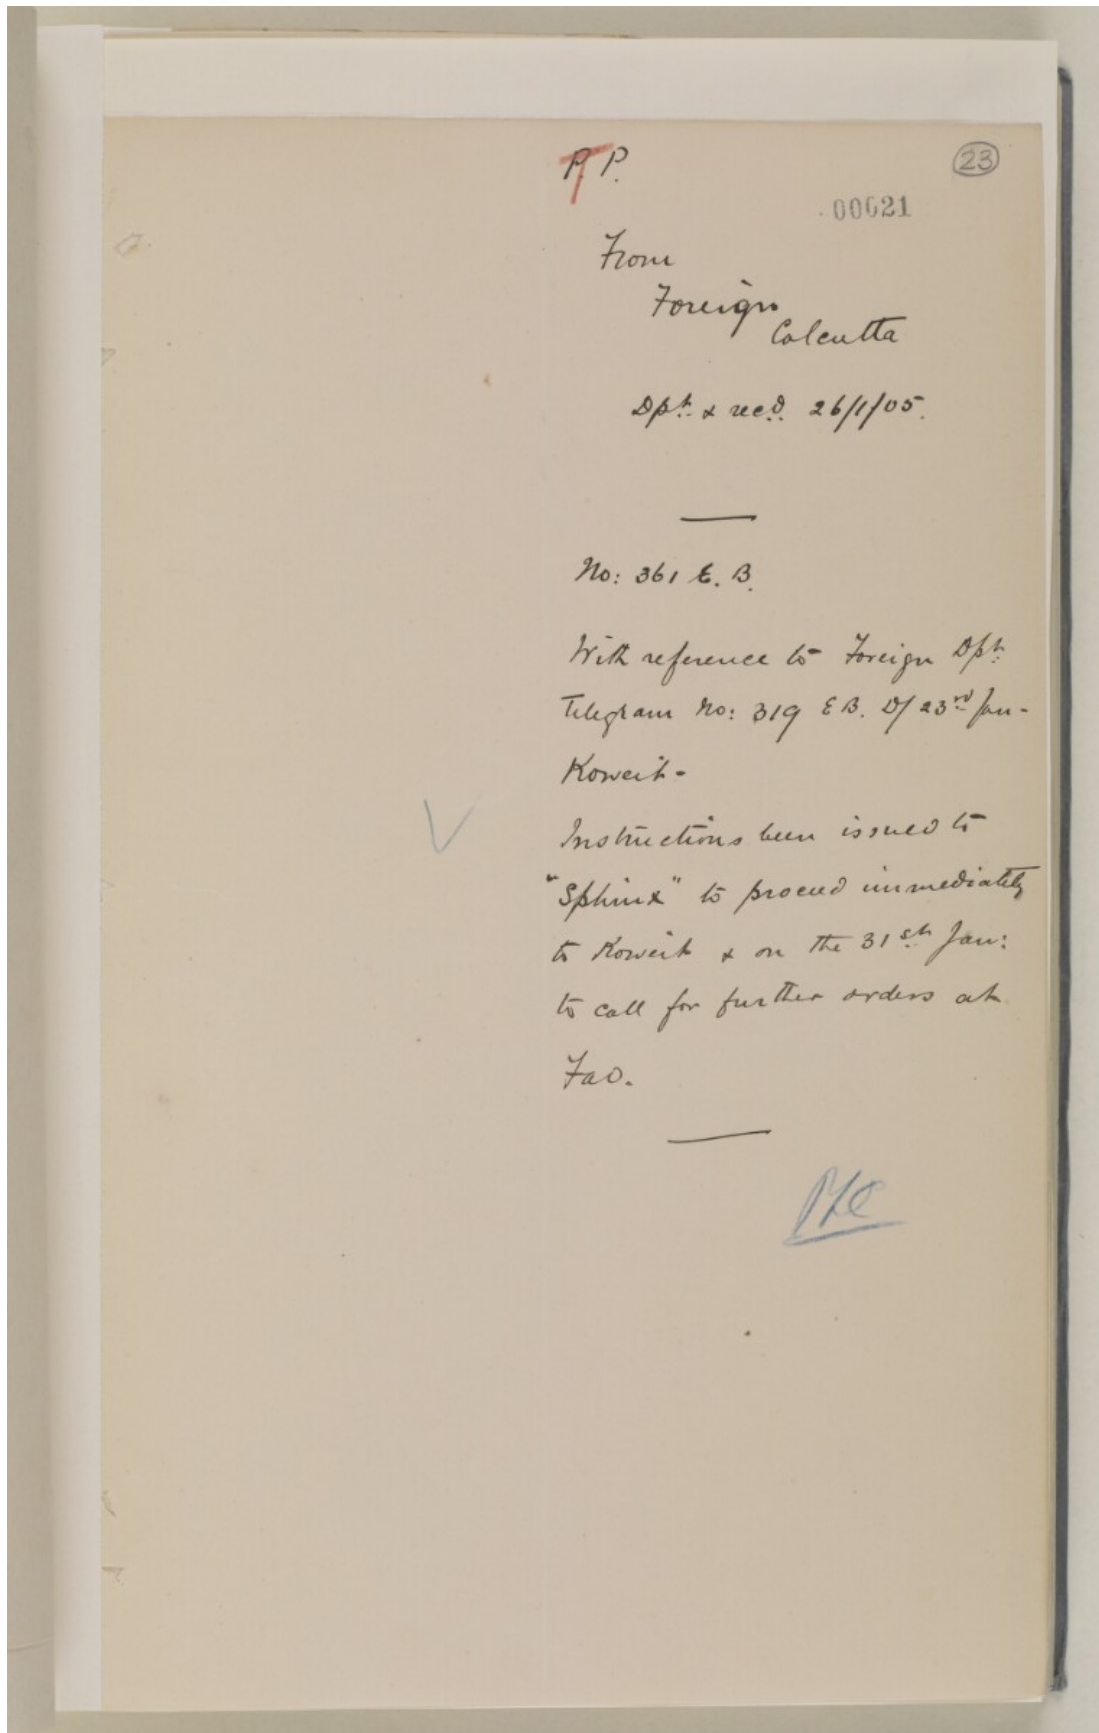 P.P.
T
23
00021
From
Foreign
Calcutta
Dpt. & recd. 26/1/05.
No: 361 E. B.
With reference to Foreign Dpt:
Telegram No: 319 E B. D/ 23rd Jan-
Koweit-
Instructions been issued to
"Sphinx" to proceed immediately
to Koweit & on the 31st Jan:
to call for further orders at
Fao.